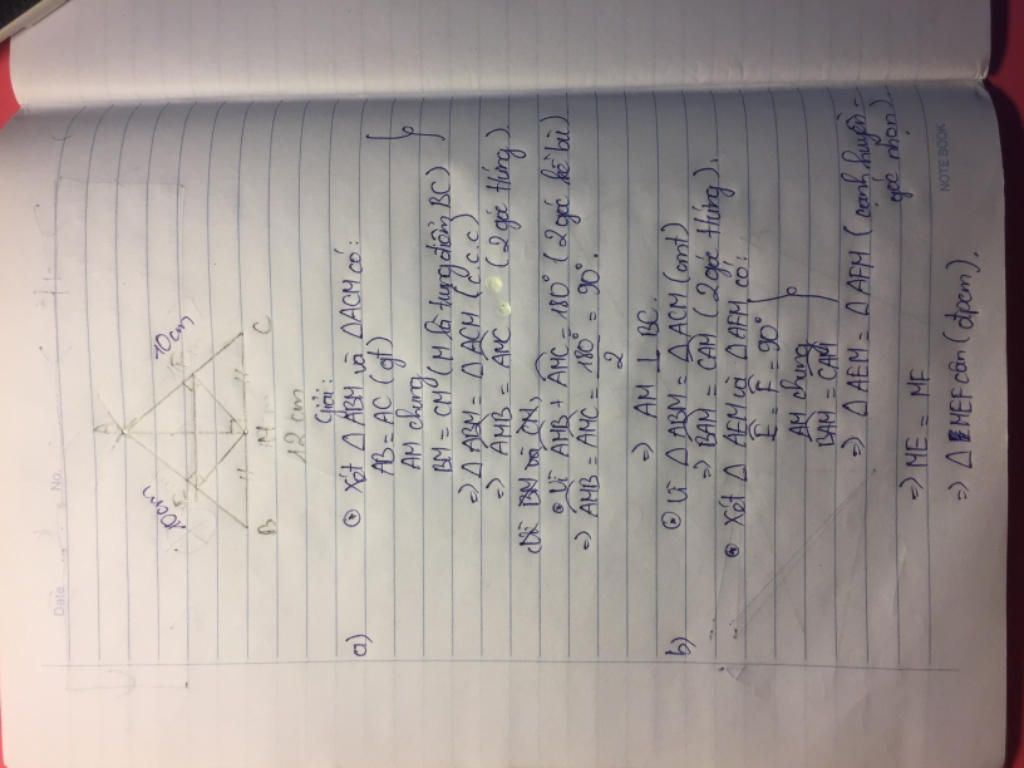 Date No.
A
10cm
10cm
E
F
B M C
12 cm
Giải:
a) Xét Δ ABM và ΔACM có:
AB = AC (gt)
AM chung
BM = CM (M là trung điểm BC)
=> Δ ABM = Δ ACM (c.c.c)
=> AMB = AMC (2 góc t/ứng)
Vì AMB + AMC = 180° (2 góc kề bù)
=> AMB = AMC = 180° / 2 = 90°.
=> AM ⊥ BC.
b) Vì Δ ABM = Δ ACM (cmt)
=> BAM = CAM (2 góc t/ứng).
Xét Δ AEM và Δ AFM có:
E = F = 90°
AM chung
BAM = CAM
=> Δ AEM = Δ AFM (cạnh huyền -
góc nhọn).
=> ME = MF
=> Δ MEF cân (đpcm).
NOTE BOOK